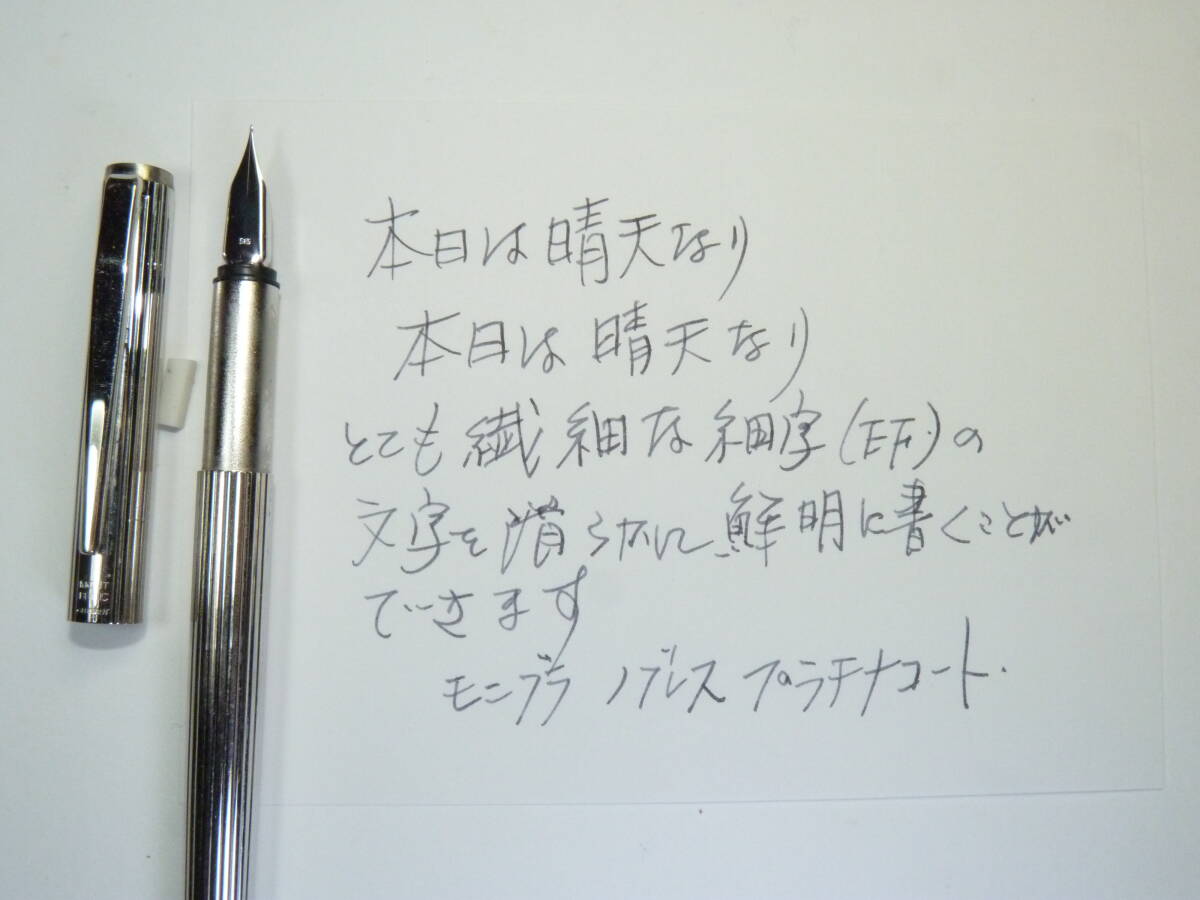 本日は晴天なり
本日は晴天なり
とても繊細な細字(EF)の
文字を滑らかに鮮明に書くことが
できます
モンブラン ノブレス プラチナコート.
585
MONT
BLANC